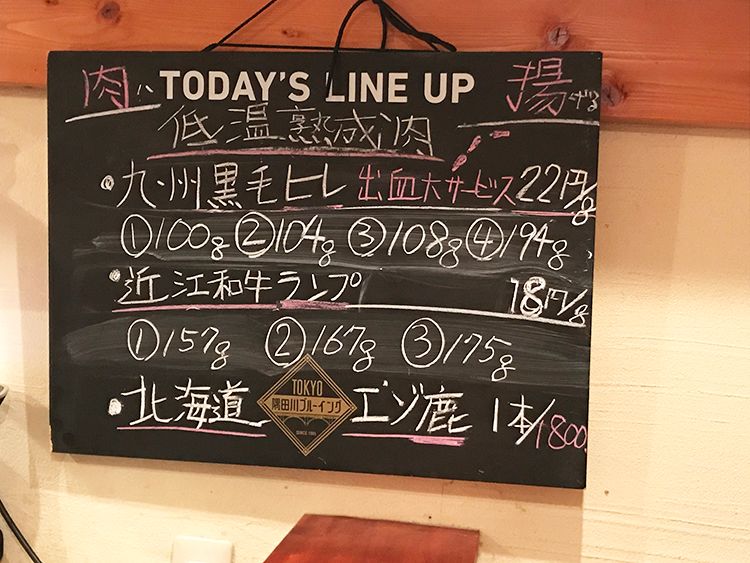 肉ハ TODAY'S LINE UP 揚げる
低温熟成肉
・九州黒毛ヒレ 出血大サービス 22円/g
①100g ②104g ③108g ④194g
・近江和牛ランプ 18円/g
①157g ②167g ③175g
・北海道 エゾ鹿 1本/1800
TOKYO
隅田川ブルーイング
SINCE 1995